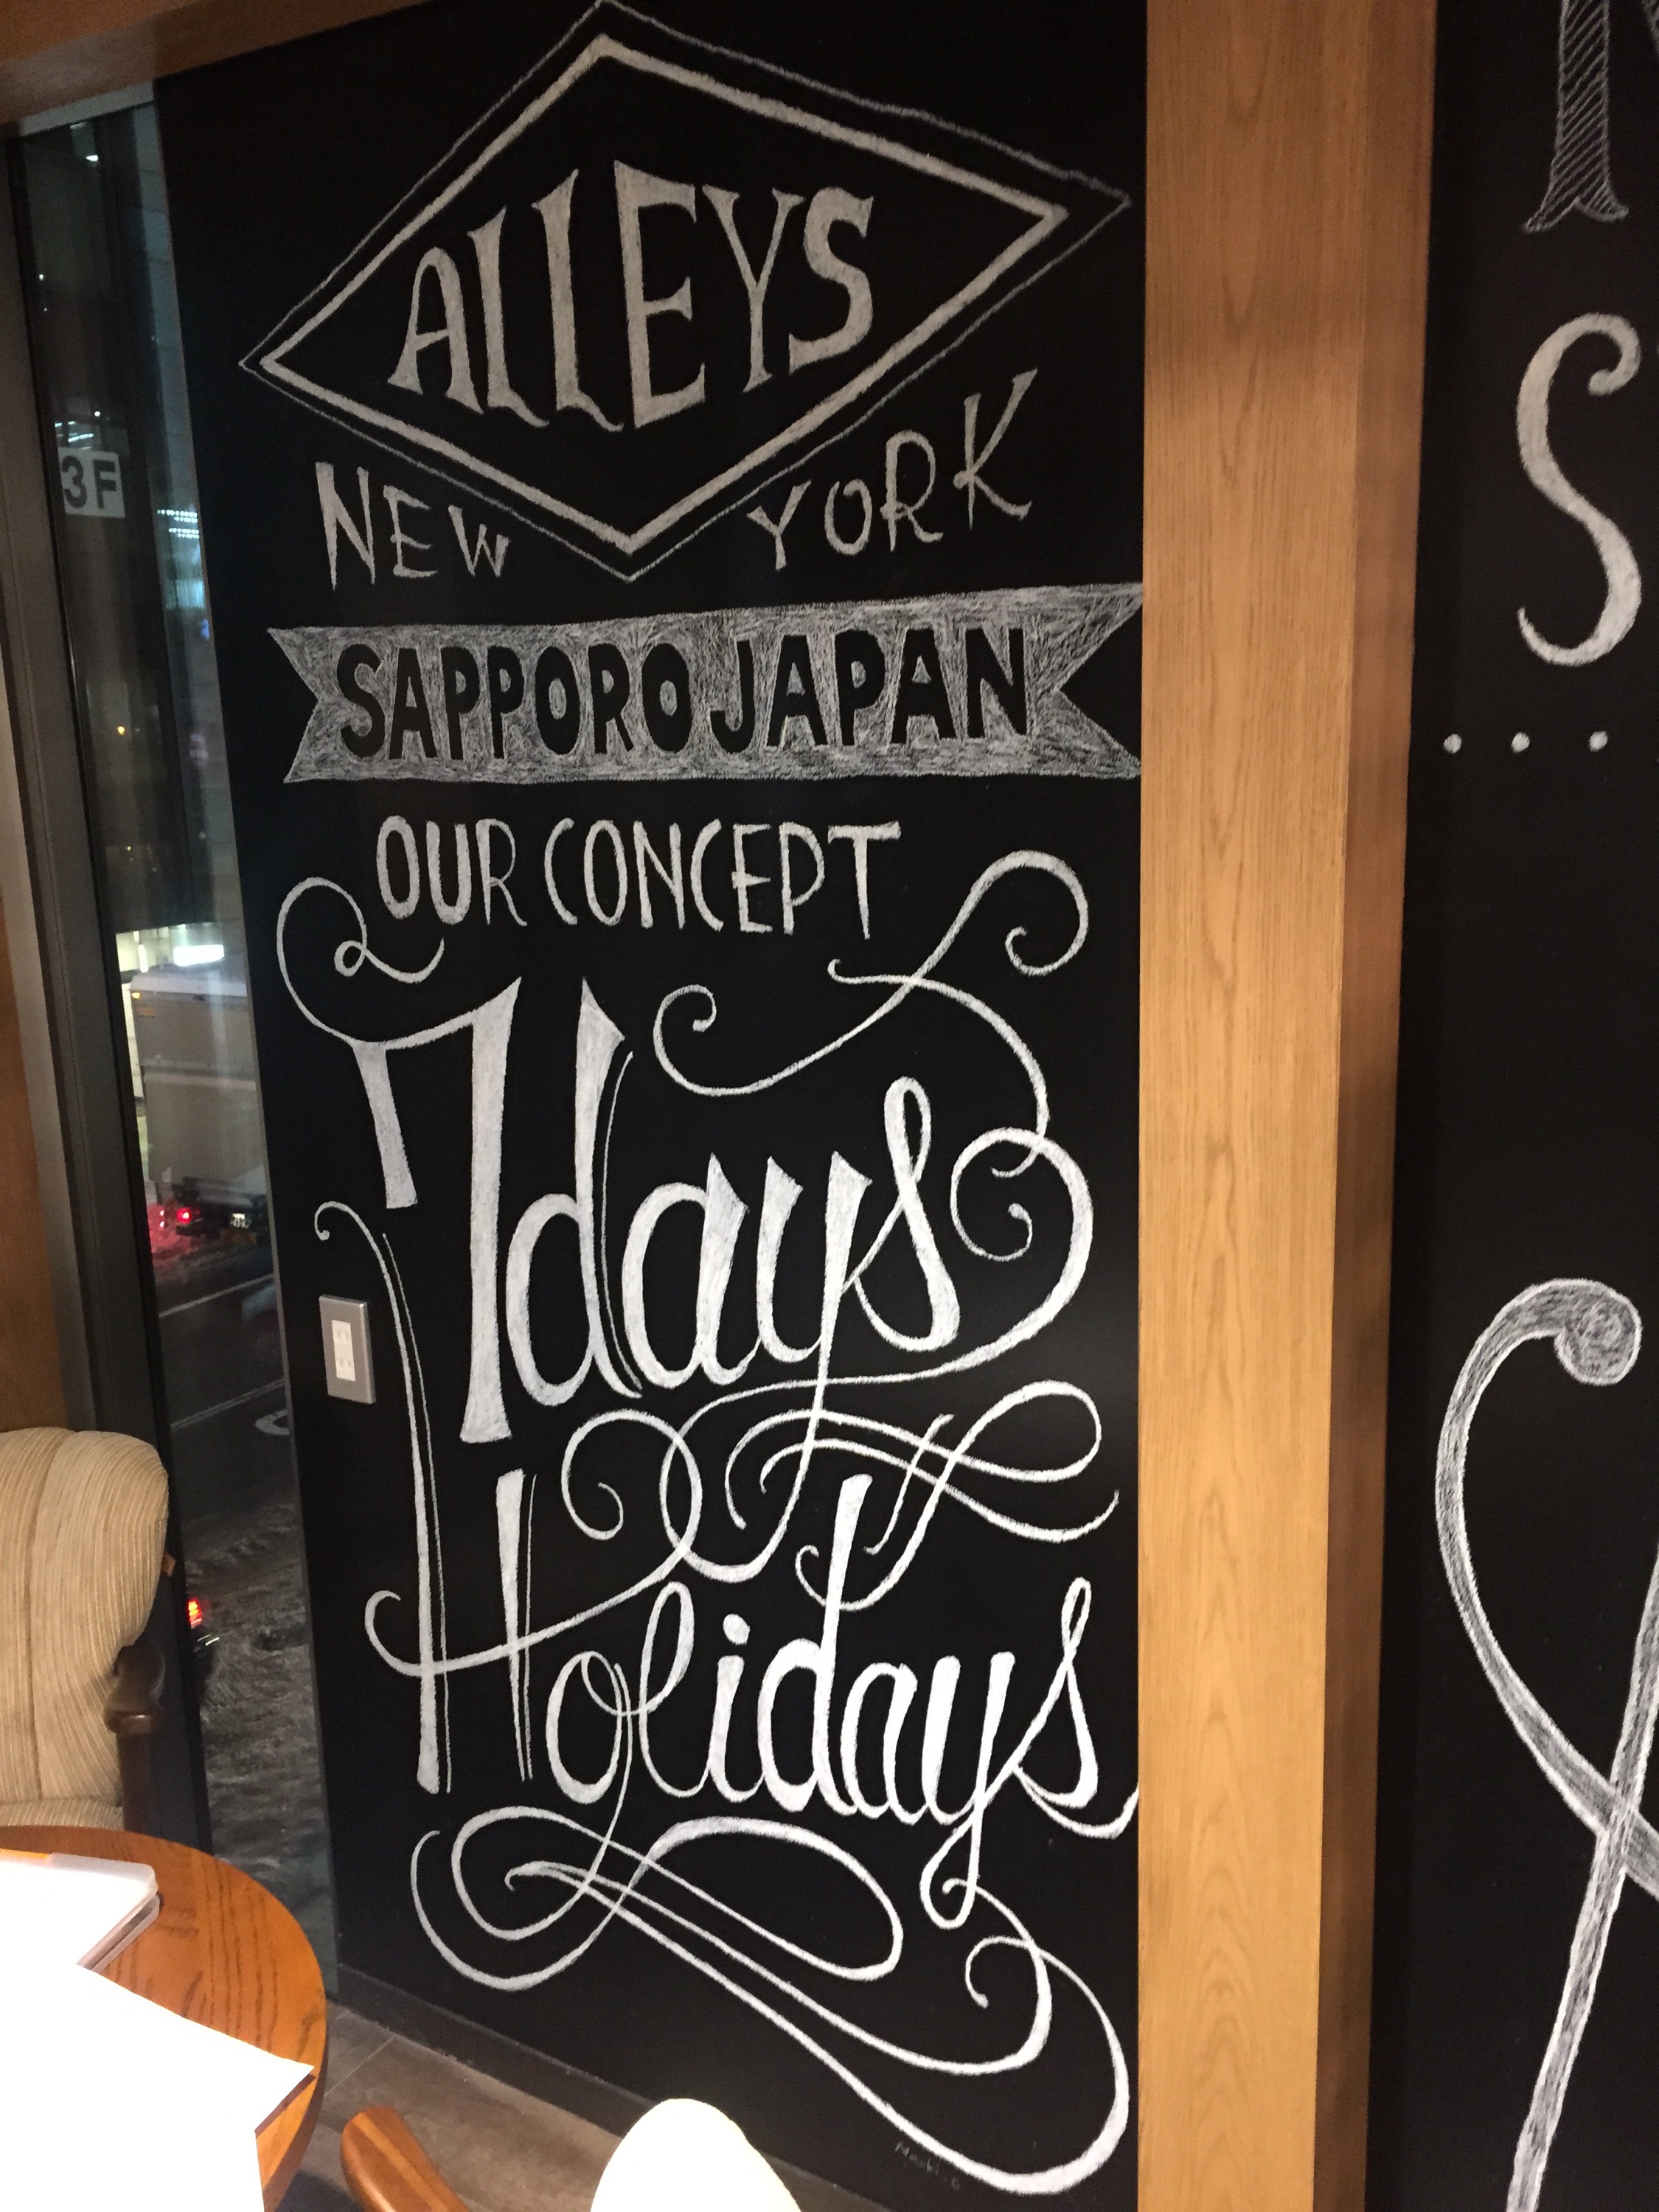 ALLEYS
NEW YORK
SAPPORO JAPAN
OUR CONCEPT
7days
Holidays
3F
S